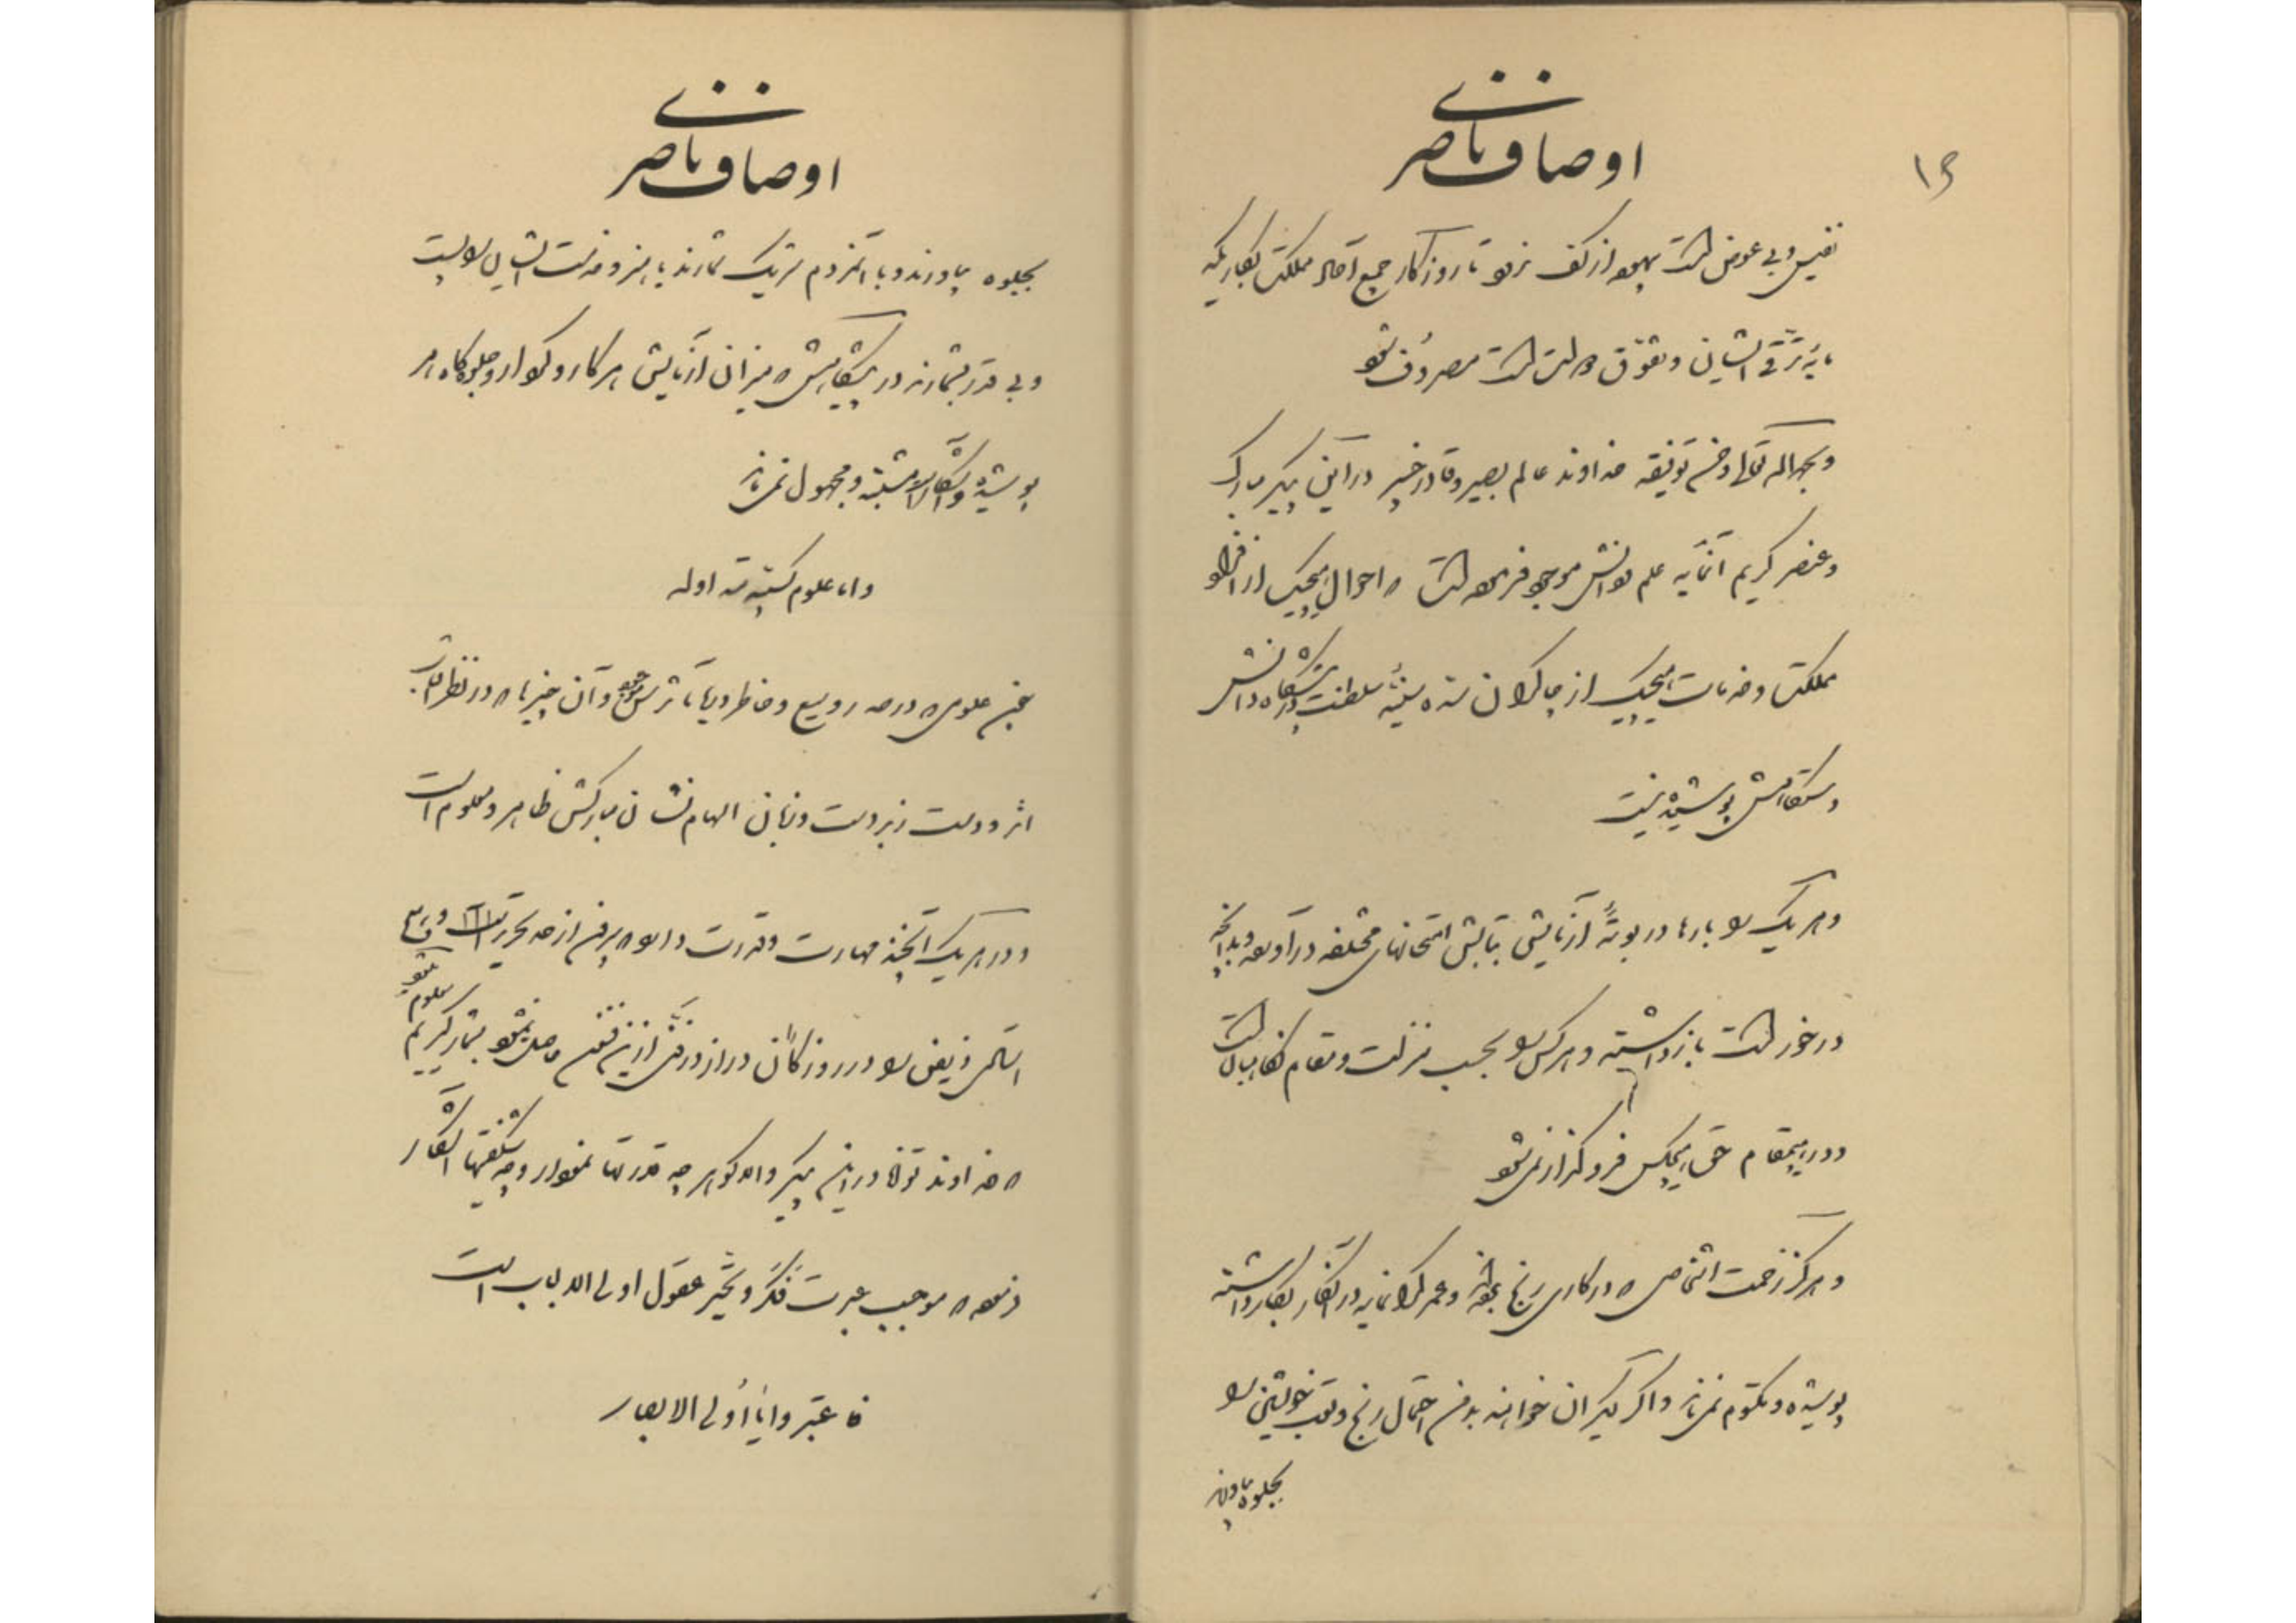 ۱۶
اوصاف ناصری
نفیس و بی عوض است بیهوده از کف نرود تا روزگار جمیع آحاد مملکت بکاریکه
مایهٔ ترقی ایشان و تفوق دولت است مصروف شود
و بحمدالله تعالی و حسن توفیقه خداوند عالم بصیر و قادر خبیر در این پیکر مبارک
و عنصر کریم آنمایه علم و دانش موجود فرموده است که احوال هیچیک از افراد
مملکت و خدمات هیچیک از چاکران سده سنیهٔ سلطنت در پیشگاه دانش
و ستقامتش پوشیده نیست
و هر یک را بارها در بوتهٔ آزمایش بتابش امتحانهای مختلفه درآورده و بدانچه
در خور است باز داشته و هر کس را بحسب منزلت و مقام نگاهبان است
و در هیچمقام حق هیچکس فروگذار نمیشود
و هرگز زحمت اشخاصی که در کاری رنج برده و عمر گرانمایه در آنکار بکار داشته
پوشیده و مکتوم نمی ماند و اگر دیگران خواهند بدون احتمال رنج و تعب خویشتن را
بجلوه بیاورند
اوصاف ناصری
بجلوه بیاورند و با آنمردم شریک شمارند یا هنر و خدمت ایشان را پست
و بی قدر بشمارند در پیشگاهش که میزان آزمایش هر کار و کردار و جلوه گاه هر
پوشیده و آشکار است مشتبه و مجهول نمی ماند
و اما علوم کسبیه متداوله
چنین علومی که در صدر وسیع و خاطر دریا مآثرش جمع و آن چیزها که در نظر آفتاب
اثر و دست زبردست و زبان الهام نشان مبارکش ظاهر و معلوم است
و در هر یک آنچند مهارت و قدرت دارد که بیرون از حد تحریر است و
اگر کسی ذیفن را در روزگاران دراز در فنی از این فنون حاصل میشود بشمار گیریم معلوم شود
که خداوند توانا در این پیکر والا گوهر چه قدرتها نمودار و چه شگفتیها آشکار
فرموده که موجب عبرت فکر و تحیر عقول اولی الالباب است
فاعتبروا یا اولی الابصار